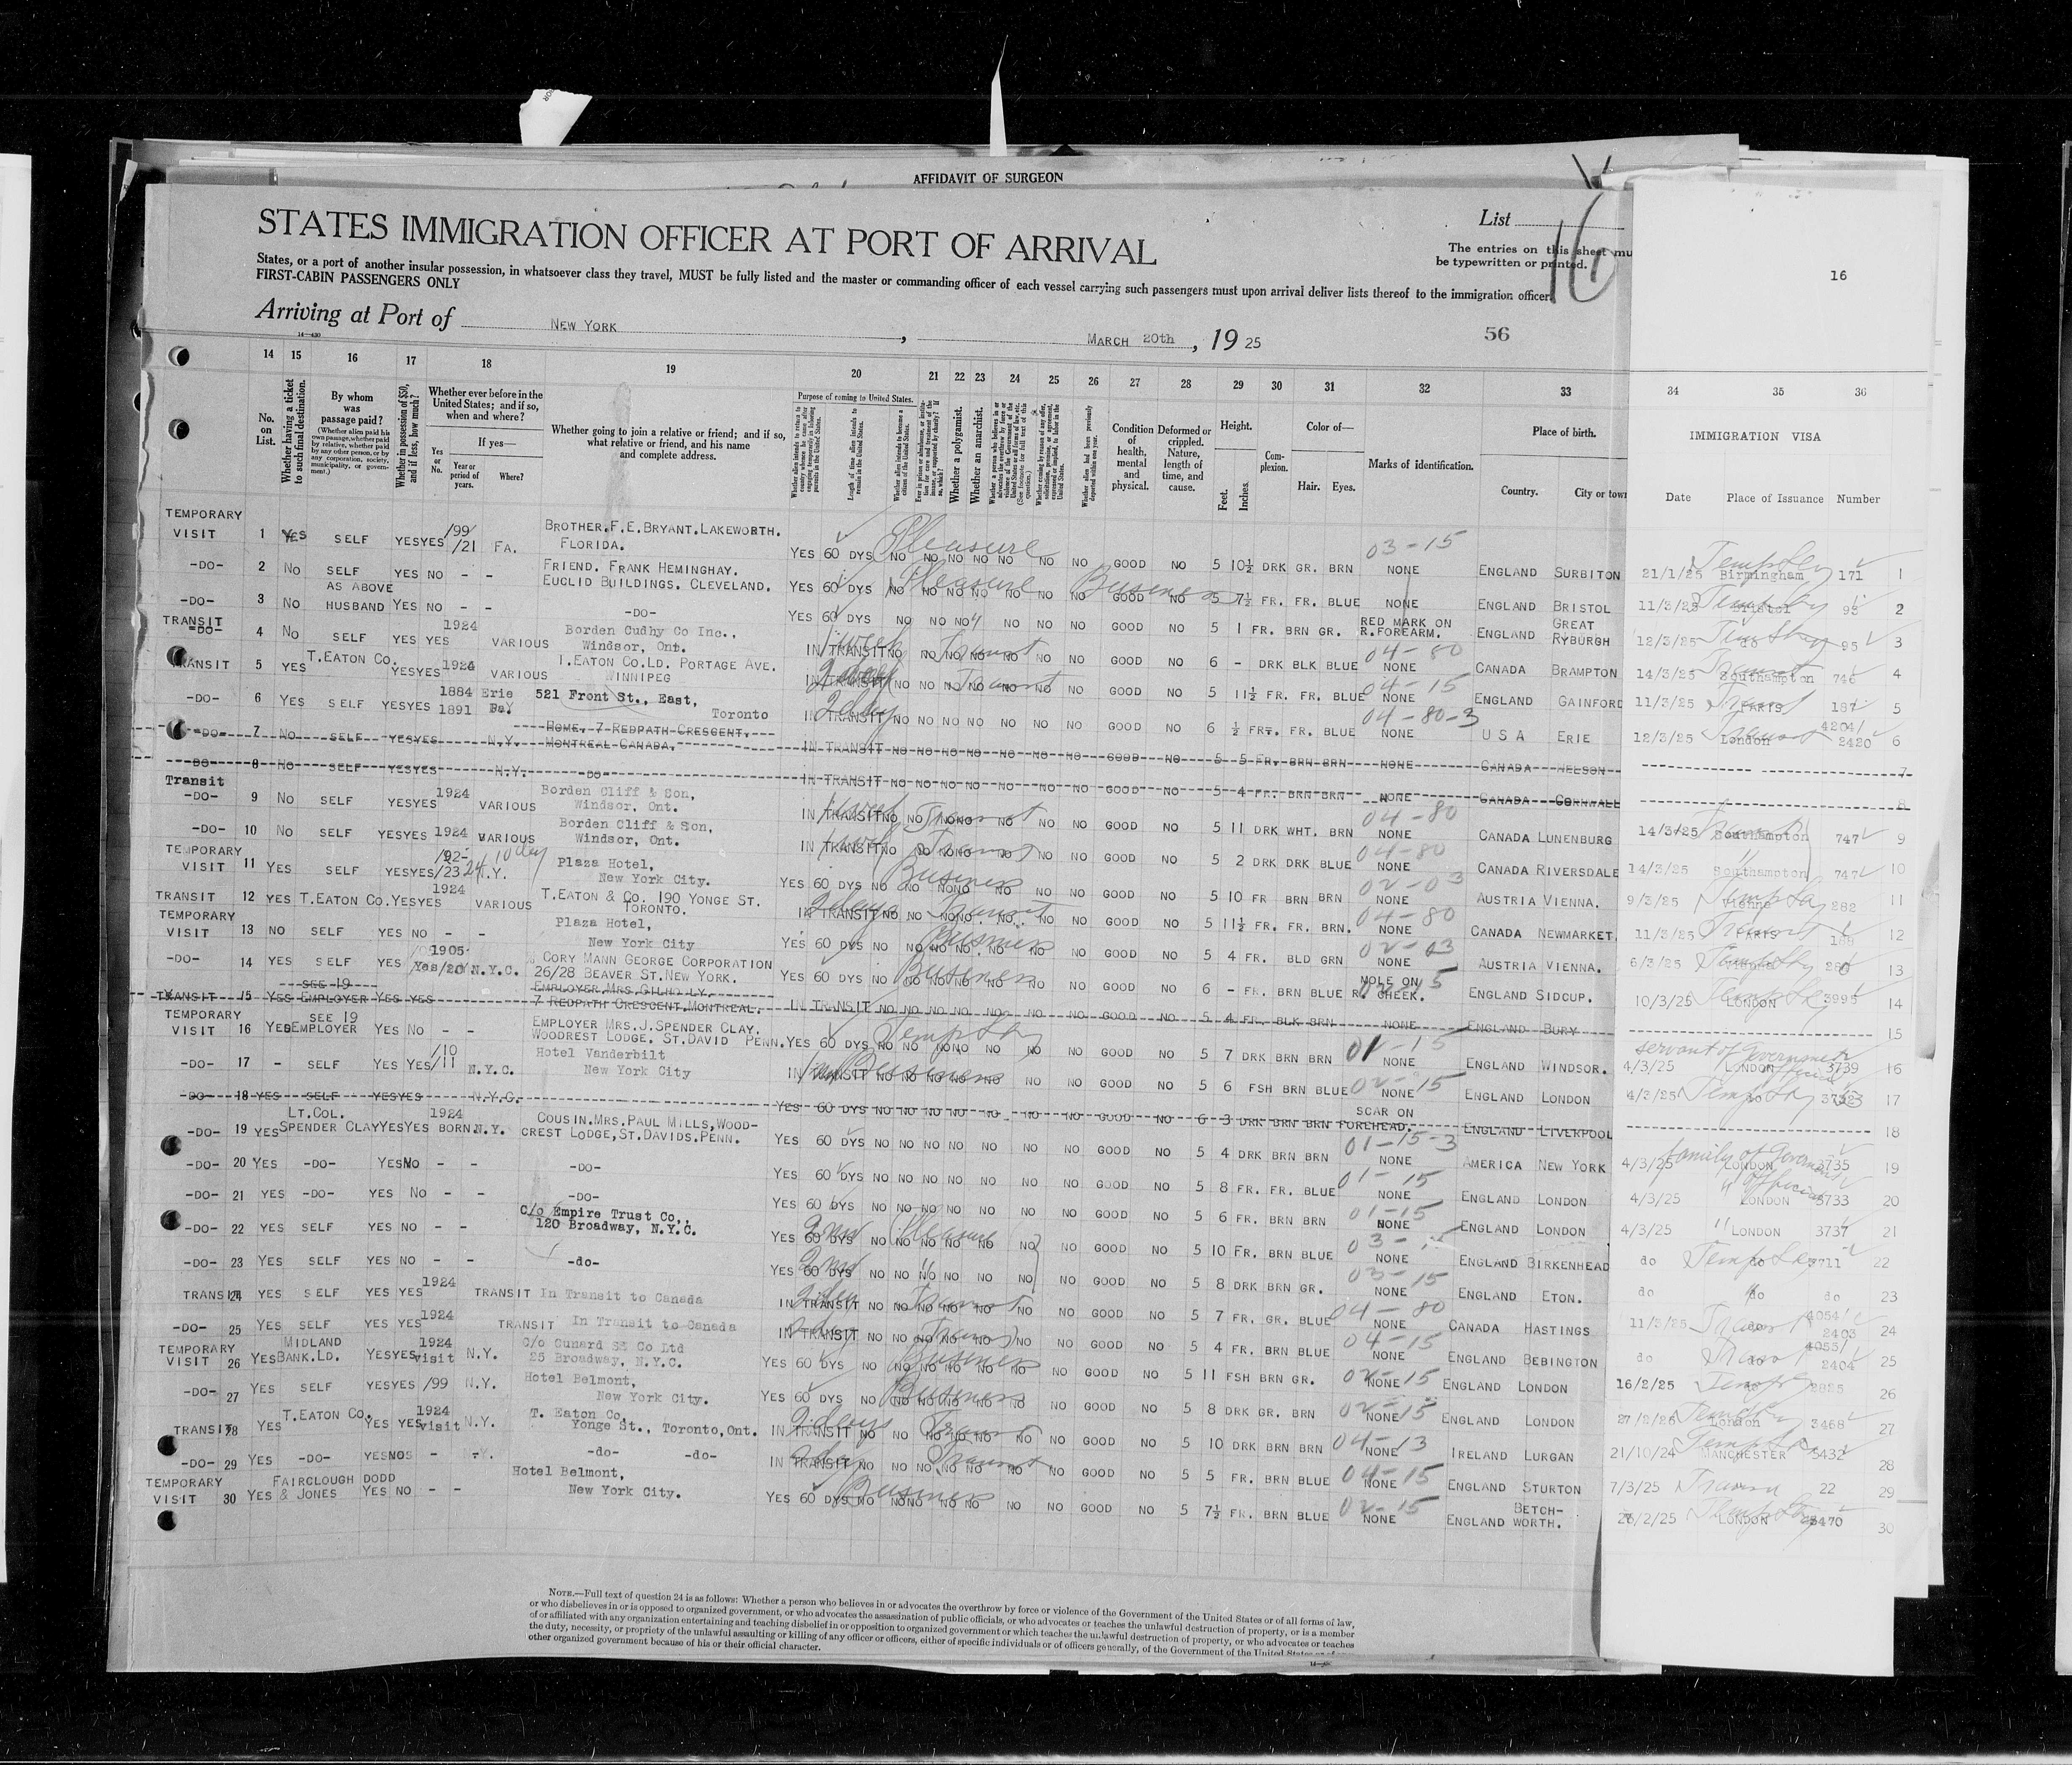 AFFIDAVIT OF SURGEON
STATES IMMIGRATION OFFICER AT PORT OF ARRIVAL
List
16
The entries on this sheet mu
be typewritten or printed.
States, or a port of another insular possession, in whatsoever class they travel, MUST be fully listed and the master or commanding officer of each vessel carrying such passengers must upon arrival deliver lists thereof to the immigration officer
FIRST-CABIN PASSENGERS ONLY
Arriving at Port of NEW YORK, MARCH 20th, 1925
56
16
14 15 16 17 18 19 20 21 22 23 24 25 26 27 28 29 30 31 32 33 34 35 36
No. on List.
Whether having a ticket to such final destination.
By whom was passage paid?
(Whether alien paid his own passage, whether paid by relative, whether paid by any other person, or by any corporation, society, municipality, or government.)
Whether in possession of $50, and if less, how much?
Whether ever before in the United States; and if so, when and where?
Yes or No.
If yes—
Year or period of years.
Where?
Whether going to join a relative or friend; and if so, what relative or friend, and his name and complete address.
Purpose of coming to United States.
Length of time alien intends to remain in the United States.
Whether a polygamist.
Whether an anarchist.
Condition of health, mental and physical.
Deformed or crippled. Nature, length of time, and cause.
Height.
Feet. Inches.
Complexion.
Color of—
Hair. Eyes.
Marks of identification.
Place of birth.
Country. City or town
IMMIGRATION VISA
Date Place of Issuance Number
TEMPORARY VISIT 1 YES SELF YES YES /99 /21 FA. BROTHER.F.E.BRYANT.LAKEWORTH. FLORIDA. YES 60 DYS Pleasure NO NO NO NO NO NO NO GOOD NO 5 10½ DRK GR. BRN 03-15 NONE ENGLAND SURBITON 21/1/25 Birmingham 171 1
-DO- 2 NO SELF YES NO - - FRIEND. FRANK HEMINGHAY. EUCLID BUILDINGS. CLEVELAND. YES 60 DYS Pleasure Business NO NO NO NO NO NO NO GOOD NO 5 7½ FR. FR. BLUE NONE ENGLAND BRISTOL 11/3/25 Bristol 2
-DO- 3 NO AS ABOVE HUSBAND YES NO - - -DO- YES 60 DYS NO NO NO NO NO NO GOOD NO 5 1 FR. BRN GR. RED MARK ON R.FOREARM. ENGLAND GREAT RYBURGH 12/3/25 do 95 3
TRANSIT -DO- 4 NO SELF YES YES 1924 VARIOUS Borden Cudhy Co Inc., Windsor, Ont. IN TRANSIT 1 week Transit NO NO NO NO NO NO NO GOOD NO 6 - DRK BLK BLUE 04-80 NONE CANADA BRAMPTON 14/3/25 Southampton 4
TRANSIT 5 YES T.EATON CO. YES YES 1924 VARIOUS T.EATON CO.LD. PORTAGE AVE. WINNIPEG IN TRANSIT Transit NO NO NO NO NO NO NO GOOD NO 5 11½ FR. FR. BLUE 04-15 NONE ENGLAND GAINFORD 11/3/25 PARIS 187 5
-DO- 6 YES SELF YES YES 1884 1891 Erie Pa. 521 Front St., East, Toronto IN TRANSIT 2 day NO NO NO NO NO NO NO GOOD NO 6 ½ FR. FR. BLUE 04-80-3 NONE U S A ERIE 12/3/25 London 4204/ 2420 6
-DO- 7 NO SELF YES YES N.Y. HOME. 7 REDPATH CRESCENT. MONTREAL CANADA. IN TRANSIT NO NO NO NO NO NO NO GOOD NO 5 5 FR. BRN BRN NONE CANADA NELSON 7
-DO- 8 NO SELF YES YES N.Y. -DO- IN TRANSIT NO NO NO NO NO NO NO GOOD NO 5 4 FR. BRN BRN NONE CANADA CORNWALL 8
Transit -DO- 9 NO SELF YES YES 1924 VARIOUS Borden Cliff & Son, Windsor, Ont. IN TRANSIT 1 week Transit NO NO NO NO NO NO NO GOOD NO 5 11 DRK WHT. BRN 04-80 NONE CANADA LUNENBURG 14/3/25 Southampton 747 9
-DO- 10 NO SELF YES YES 1924 VARIOUS Borden Cliff & Son, Windsor, Ont. IN TRANSIT Transit NO NO NO NO NO NO NO GOOD NO 5 2 DRK DRK BLUE 04-80 NONE CANADA RIVERSDALE 14/3/25 Southampton 747 10
TEMPORARY VISIT 11 YES SELF YES YES /23 N.Y. Plaza Hotel, New York City. YES 60 DYS Business NO NO NO NO NO NO NO GOOD NO 5 10 FR BRN BRN 02-03 NONE AUSTRIA VIENNA. 9/3/25 Vienna 282 11
TRANSIT 12 YES T.EATON CO. YES YES 1924 VARIOUS T.EATON & CO. 190 YONGE ST. TORONTO. IN TRANSIT 2 days Transit NO NO NO NO NO NO NO GOOD NO 5 11½ FR. FR. BRN. 04-80 NONE CANADA NEWMARKET. 11/3/25 PARIS 12
TEMPORARY VISIT 13 NO SELF YES NO - - Plaza Hotel, New York City YES 60 DYS Business NO NO NO NO NO NO NO GOOD NO 5 4 FR. BLD GRN 02-03 NONE AUSTRIA VIENNA. 6/3/25 Vienna 13
-DO- 14 YES SELF YES 1905 Yes/20 N.Y.C. CORY MANN GEORGE CORPORATION 26/28 BEAVER ST.NEW YORK. YES 60 DYS Business NO NO NO NO NO NO NO GOOD NO 6 - FR. BRN BLUE MOLE ON R. CHEEK. ENGLAND SIDCUP. 10/3/25 LONDON 3995 14
TRANSIT 15 YES SEE 19 EMPLOYER YES YES EMPLOYER.MRS.GILHOLLY. 7 REDPATH CRESCENT.MONTREAL. IN TRANSIT NO NO NO NO NO NO NO GOOD NO 5 4 FR. BLK BRN NONE ENGLAND BURY 15
TEMPORARY VISIT 16 YES SEE 19 EMPLOYER YES NO - - EMPLOYER MRS.J.SPENDER CLAY. WOODREST LODGE. ST.DAVID PENN. YES 60 DYS NO NO NO NO NO NO NO GOOD NO 5 7 DRK BRN BRN 01-15 NONE ENGLAND WINDSOR. servant of Government official 4/3/25 LONDON 3739 16
-DO- 17 - SELF YES YES /10 /11 N.Y.C. Hotel Vanderbilt New York City IN TRANSIT Business NO NO NO NO NO NO NO GOOD NO 5 6 FSH BRN BLUE 02-15 NONE ENGLAND LONDON 4/3/25 do 17
-DO- 18 YES SELF YES YES N.Y.C. YES 60 DYS NO NO NO NO NO NO NO GOOD NO 6 3 DRK BRN BRN SCAR ON FOREHEAD. ENGLAND LIVERPOOL 18
-DO- 19 YES LT.COL. SPENDER CLAY YES YES 1924 BORN N.Y. COUSIN.MRS.PAUL MILLS,WOOD-CREST LODGE,ST.DAVIDS.PENN. YES 60 DYS NO NO NO NO NO NO NO GOOD NO 5 4 DRK BRN BRN 01-15-3 NONE AMERICA NEW YORK 4/3/25 family of Government official LONDON 3735 19
-DO- 20 YES -DO- YES NO - - -DO- YES 60 DYS NO NO NO NO NO NO NO GOOD NO 5 8 FR. FR. BLUE 01-15 NONE ENGLAND LONDON 4/3/25 LONDON 3733 20
-DO- 21 YES -DO- YES NO - - -DO- YES 60 DYS NO NO NO NO NO NO NO GOOD NO 5 6 FR. BRN BRN 01-15 NONE ENGLAND LONDON 4/3/25 LONDON 3737 21
-DO- 22 YES SELF YES NO - - c/o Empire Trust Co., 120 Broadway, N.Y.C. YES 60 DYS Pleasure NO NO NO NO NO NO NO GOOD NO 5 10 FR. BRN BLUE NONE ENGLAND BIRKENHEAD do do 3711 22
-DO- 23 YES SELF YES NO - - -do- YES 60 DYS NO NO NO NO NO NO NO GOOD NO 5 8 DRK BRN GR. 03-15 NONE ENGLAND ETON. do do do 23
TRANSIT 24 YES SELF YES YES 1924 TRANSIT In Transit to Canada IN TRANSIT Transit NO NO NO NO NO NO NO GOOD NO 5 7 FR. GR. BLUE 04-80 NONE CANADA HASTINGS 11/3/25 do 4054/ 2403 24
-DO- 25 YES SELF YES YES 1924 TRANSIT In Transit to Canada IN TRANSIT Transit NO NO NO NO NO NO NO GOOD NO 5 4 FR. BRN BLUE 04-15 NONE ENGLAND BEBINGTON do do 4055/ 2404 25
TEMPORARY VISIT 26 YES MIDLAND BANK.LD. YES YES 1924 visit N.Y. c/o Cunard SS Co Ltd 25 Broadway, N.Y.C. YES 60 DYS Business NO NO NO NO NO NO NO GOOD NO 5 11 FSH BRN GR. 02-15 NONE ENGLAND LONDON 16/2/25 26
-DO- 27 YES SELF YES YES /99 N.Y. Hotel Belmont, New York City. YES 60 DYS Business NO NO NO NO NO NO NO GOOD NO 5 8 DRK GR. BRN 02-15 NONE ENGLAND LONDON London 3468 27
TRANSIT 28 YES T.EATON CO. YES YES 1924 visit N.Y. T. Eaton Co. Yonge St., Toronto,Ont. IN TRANSIT 2 days Transit NO NO NO NO NO NO NO GOOD NO 5 10 DRK BRN BRN 04-13 NONE IRELAND LURGAN 21/10/24 MANCHESTER 5432 28
-DO- 29 YES -DO- YES NO - - -do- -do- IN TRANSIT Transit NO NO NO NO NO NO NO GOOD NO 5 5 FR. BRN BLUE 04-15 NONE ENGLAND STURTON 7/3/25 22 29
TEMPORARY VISIT 30 YES FAIRCLOUGH DODD & JONES YES NO - - Hotel Belmont, New York City. YES 60 DYS Business NO NO NO NO NO NO NO GOOD NO 5 7½ FR. BRN BLUE 02-15 NONE ENGLAND BETCH-WORTH. LONDON 3470 30
NOTE.—Full text of question 24 is as follows: Whether a person who believes in or advocates the overthrow by force or violence of the Government of the United States or of all forms of law,
or who disbelieves in or is opposed to organized government, or who advocates the assassination of public officials, or who advocates or teaches the unlawful destruction of property, or is a member
of or affiliated with any organization entertaining and teaching disbelief in or opposition to organized government or which teaches the unlawful destruction of property, or who advocates or teaches
the duty, necessity, or propriety of the unlawful assaulting or killing of any officer or officers, either of specific individuals or of officers generally, of the Government of the United States or of
other organized government because of his or their official character.